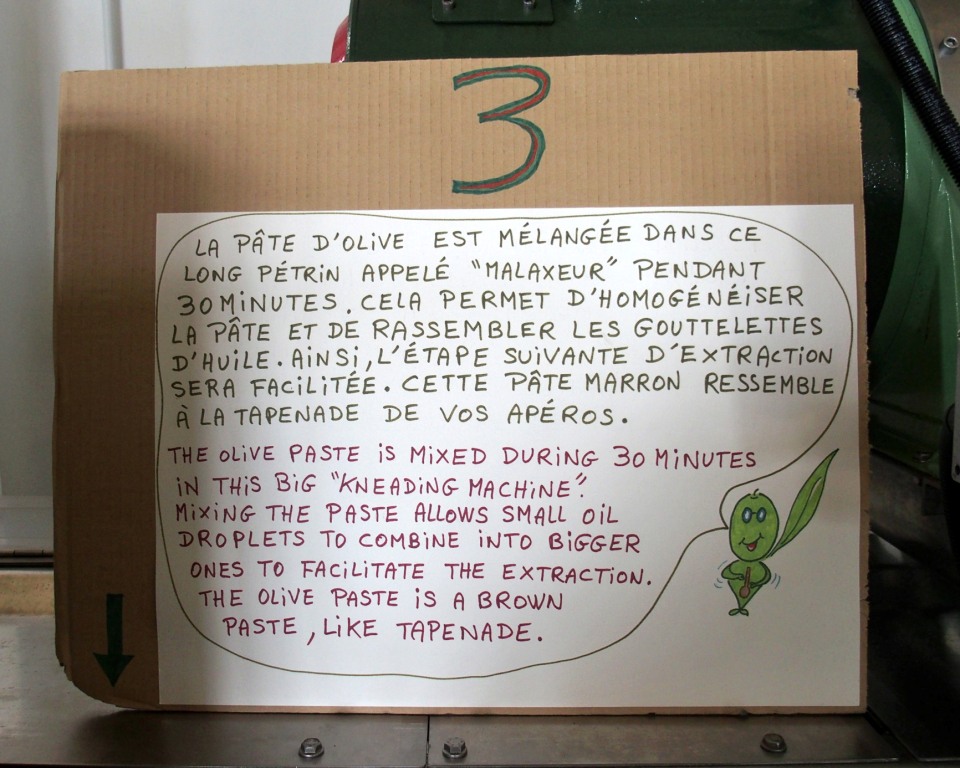 3
LA PÂTE D'OLIVE EST MÉLANGÉE DANS CE
LONG PÉTRIN APPELÉ "MALAXEUR" PENDANT
30 MINUTES. CELA PERMET D'HOMOGÉNÉISER
LA PÂTE ET DE RASSEMBLER LES GOUTTELETTES
D'HUILE. AINSI, L'ÉTAPE SUIVANTE D'EXTRACTION
SERA FACILITÉE. CETTE PÂTE MARRON RESSEMBLE
À LA TAPENADE DE VOS APÉROS.
THE OLIVE PASTE IS MIXED DURING 30 MINUTES
IN THIS BIG "KNEADING MACHINE".
MIXING THE PASTE ALLOWS SMALL OIL
DROPLETS TO COMBINE INTO BIGGER
ONES TO FACILITATE THE EXTRACTION.
THE OLIVE PASTE IS A BROWN
PASTE, LIKE TAPENADE.